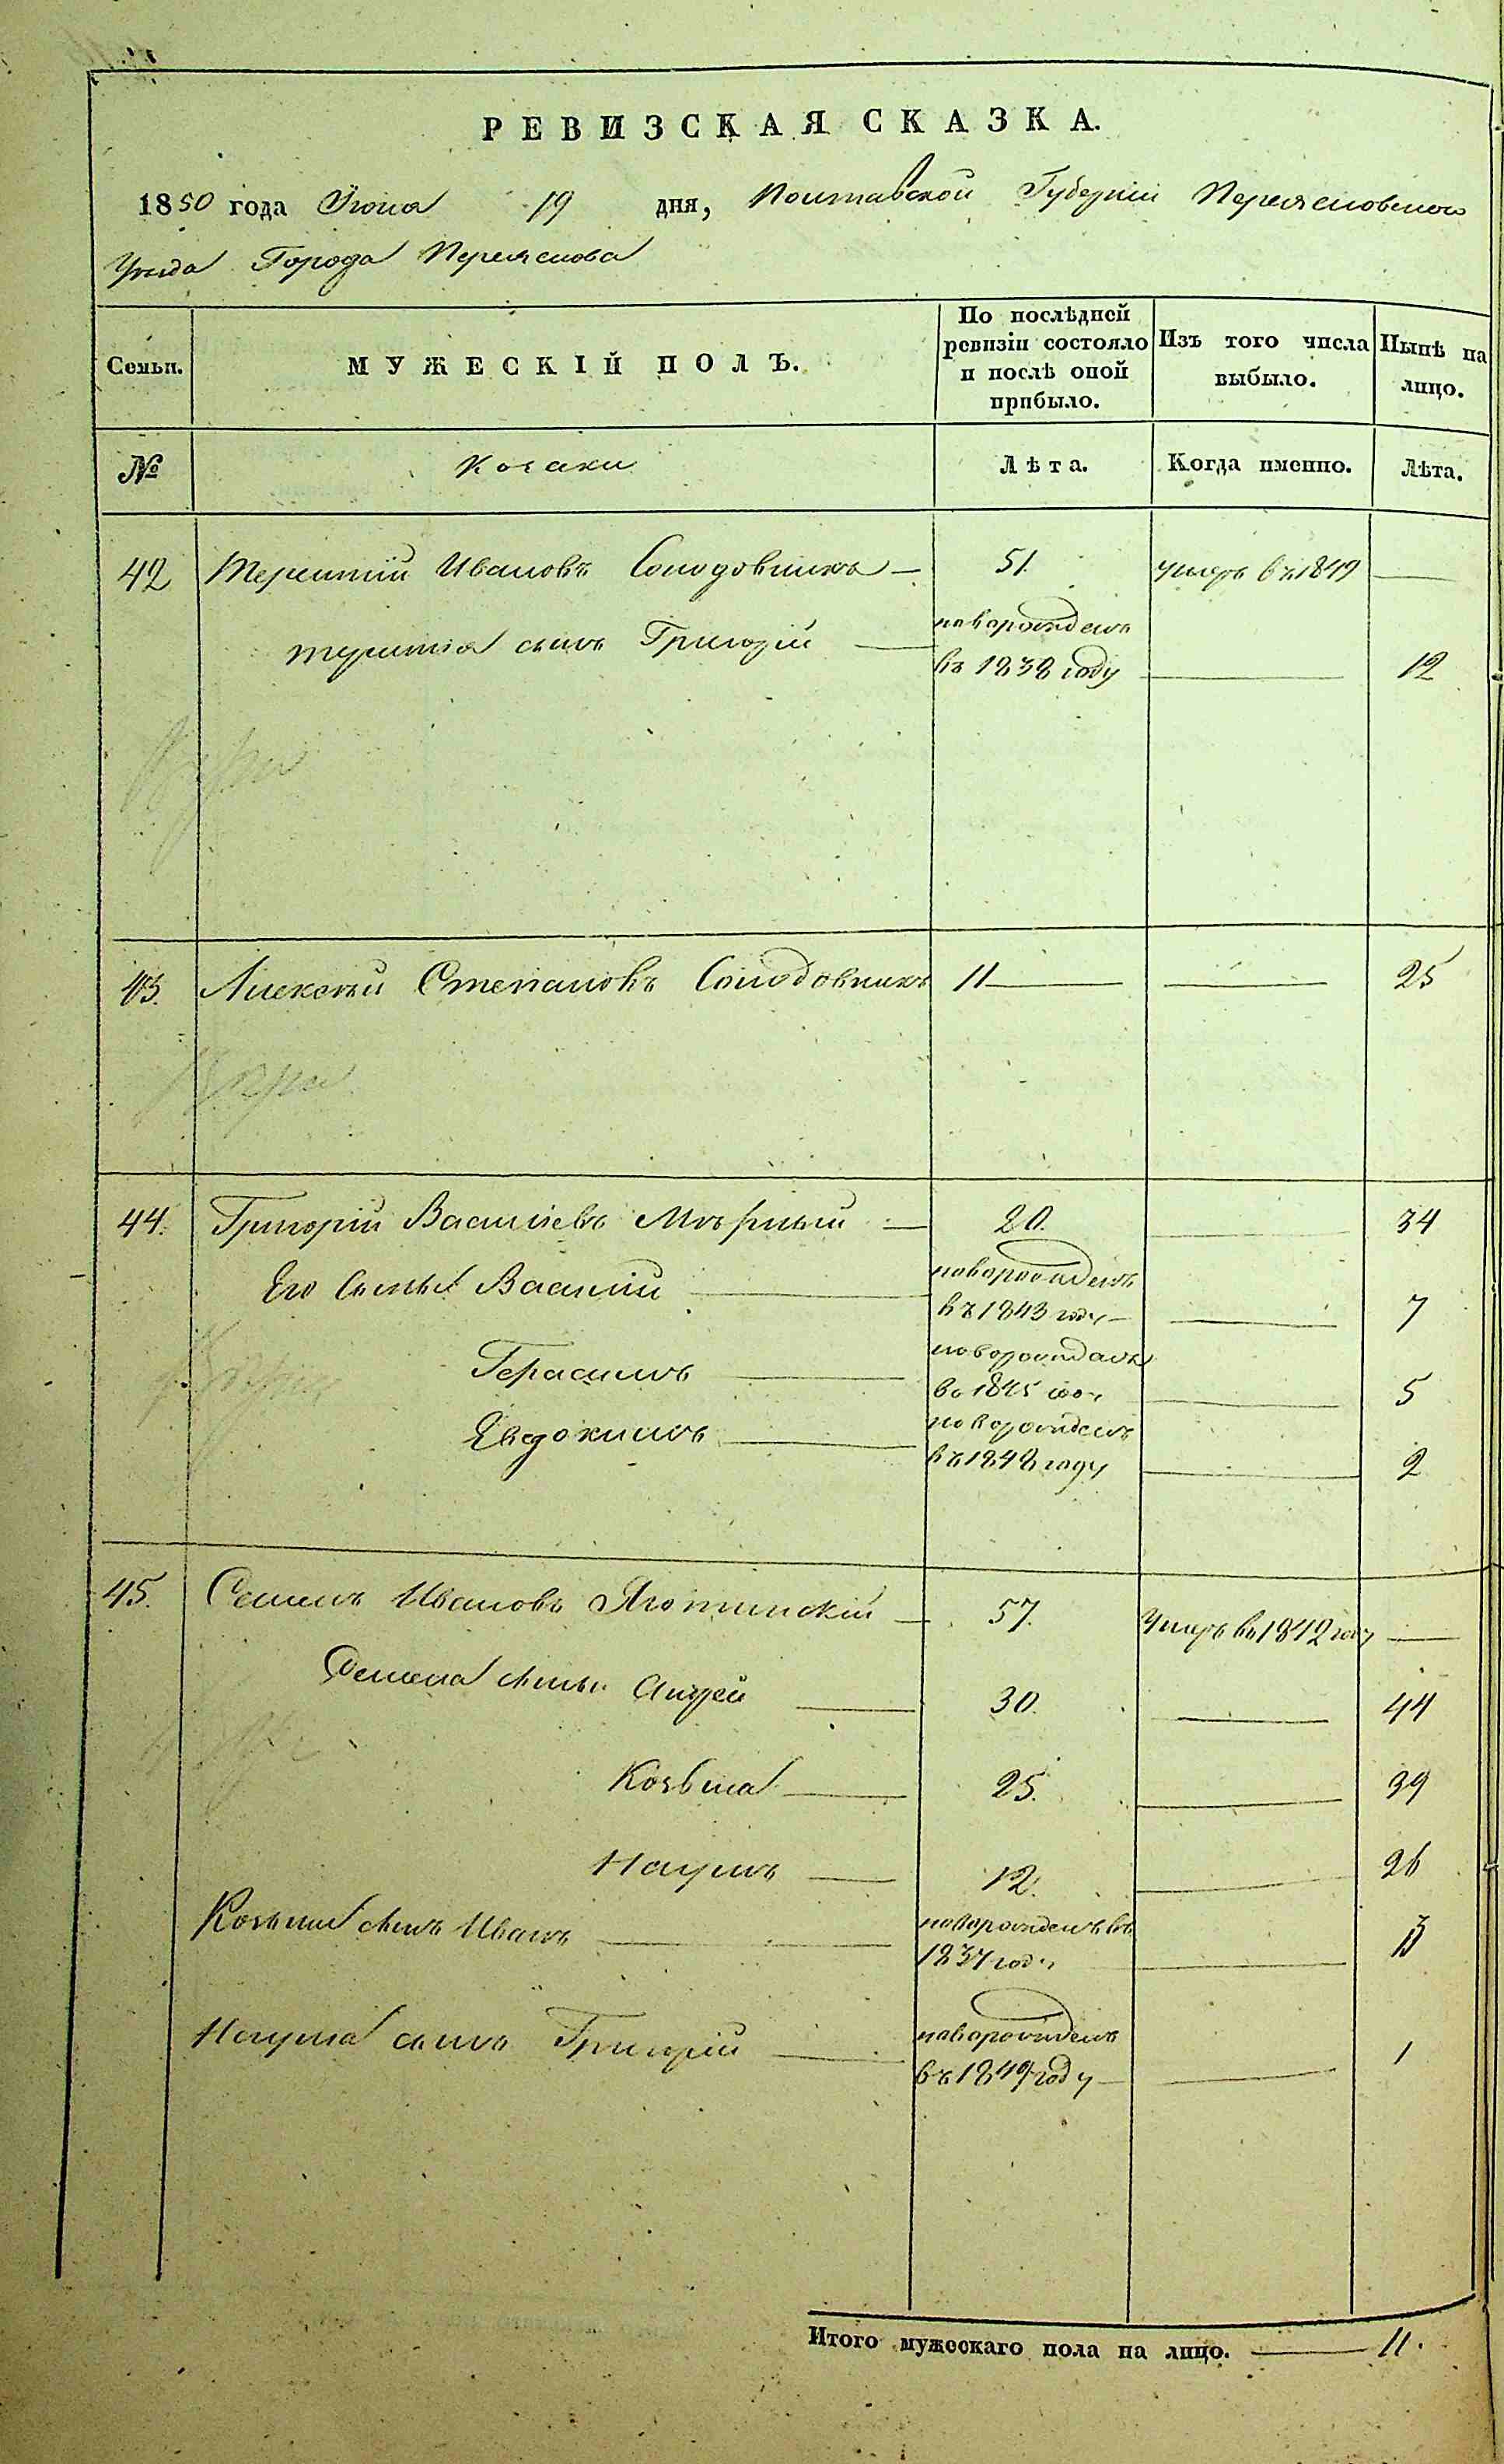 РЕВИЗСКАЯ СКАЗКА.
1850 года Июня 19 дня, Полтавской Губерніи Переясловского
Уезда Города Переяслова
Семьи.
МУЖЕСКІЙ ПОЛЪ.
По послѣдней
ревизіи состояло
и послѣ оной
прибыло.
Изъ того числа
выбыло.
Нынѣ на
лицо.
№
Козаки
Лѣта.
Когда именно.
Лѣта.
42 Терентій Ивановъ Солодовникъ — 51. умеръ въ 1849 —
Терентія сынъ Григорій — новорожденъ
въ 1838 году — 12
43. Алексѣй Степановъ Солодовникъ 11 — — 25
44. Григорій Васильевъ Мѣрный — 20. — 34
Его сыны Василій — новорожденъ
въ 1843 году — — 7
Герасимъ — новорожденъ
въ 1845 году — 5
Евдокимъ — новорожденъ
въ 1848 году — 2
45. Семенъ Ивановъ Яготинскій — 57. Умеръ въ 1842 году —
Семена сыны Андрей — 30. — 44
Козьма — 25. — 39
Наумъ — 12. — 26
Козьмы сынъ Иванъ — новорожденъ въ
1837 году — 13
Наума сынъ Григорій — новорожденъ
въ 1849 году — — 1
Итого мужескаго пола на лицо. — 11.